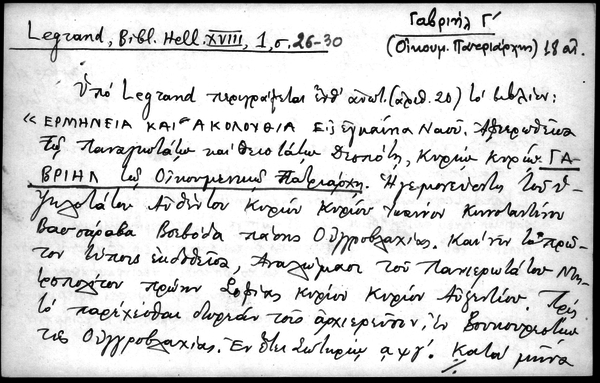 Legrand, Bibl. Hell. XVIII, 1, σ. 26-30
Γαβριήλ Γ'
(Οἰκουμ. Πατριάρχης) 18 αἰ.
Ὑπό Legrand περιγράφεται ἐνθ' ἀνωτ. (ἀριθ. 20) τό βιβλίον:
« ΕΡΜΗΝΕΙΑ ΚΑΙ ΑΚΟΛΟΥΘΙΑ Εἰς ἐγκαίνια Ναοῦ. Ἀφιερωθεῖσα
τῷ Παναγιωτάτῳ καί Θειοτάτῳ Δεσπότῃ, Κυρίῳ Κυρίῳ ΓΑ-
ΒΡΙΗΛ τῷ Οἰκουμενικῷ Πατριάρχῃ. Ἡγεμονεύοντος τοῦ ὑ-
ψηλοτάτου Αὐθέντου Κυρίου Κυρίου Ἰωάννου Κωνσταντίνου
Βασσαράβα Βοεβόδα πάσης Οὐγγροβλαχίας. Καί νῦν τό πρῶ-
τον τύποις ἐκδοθεῖσα, Ἀναλώμασι τοῦ Πανιερωτάτου Μη-
τροπολίτου πρώην Σοφίας Κυρίου Κυρίου Αὐξεντίου. Πρός
τό παρέχεσθαι δωρεάν τοῖς ἀρχιερεῦσιν, ἐν Βουκουρεστίῳ
τῆς Οὐγγροβλαχίας. Ἐν ἔτει Σωτηρίῳ αψγ'. Κατά μῆνα